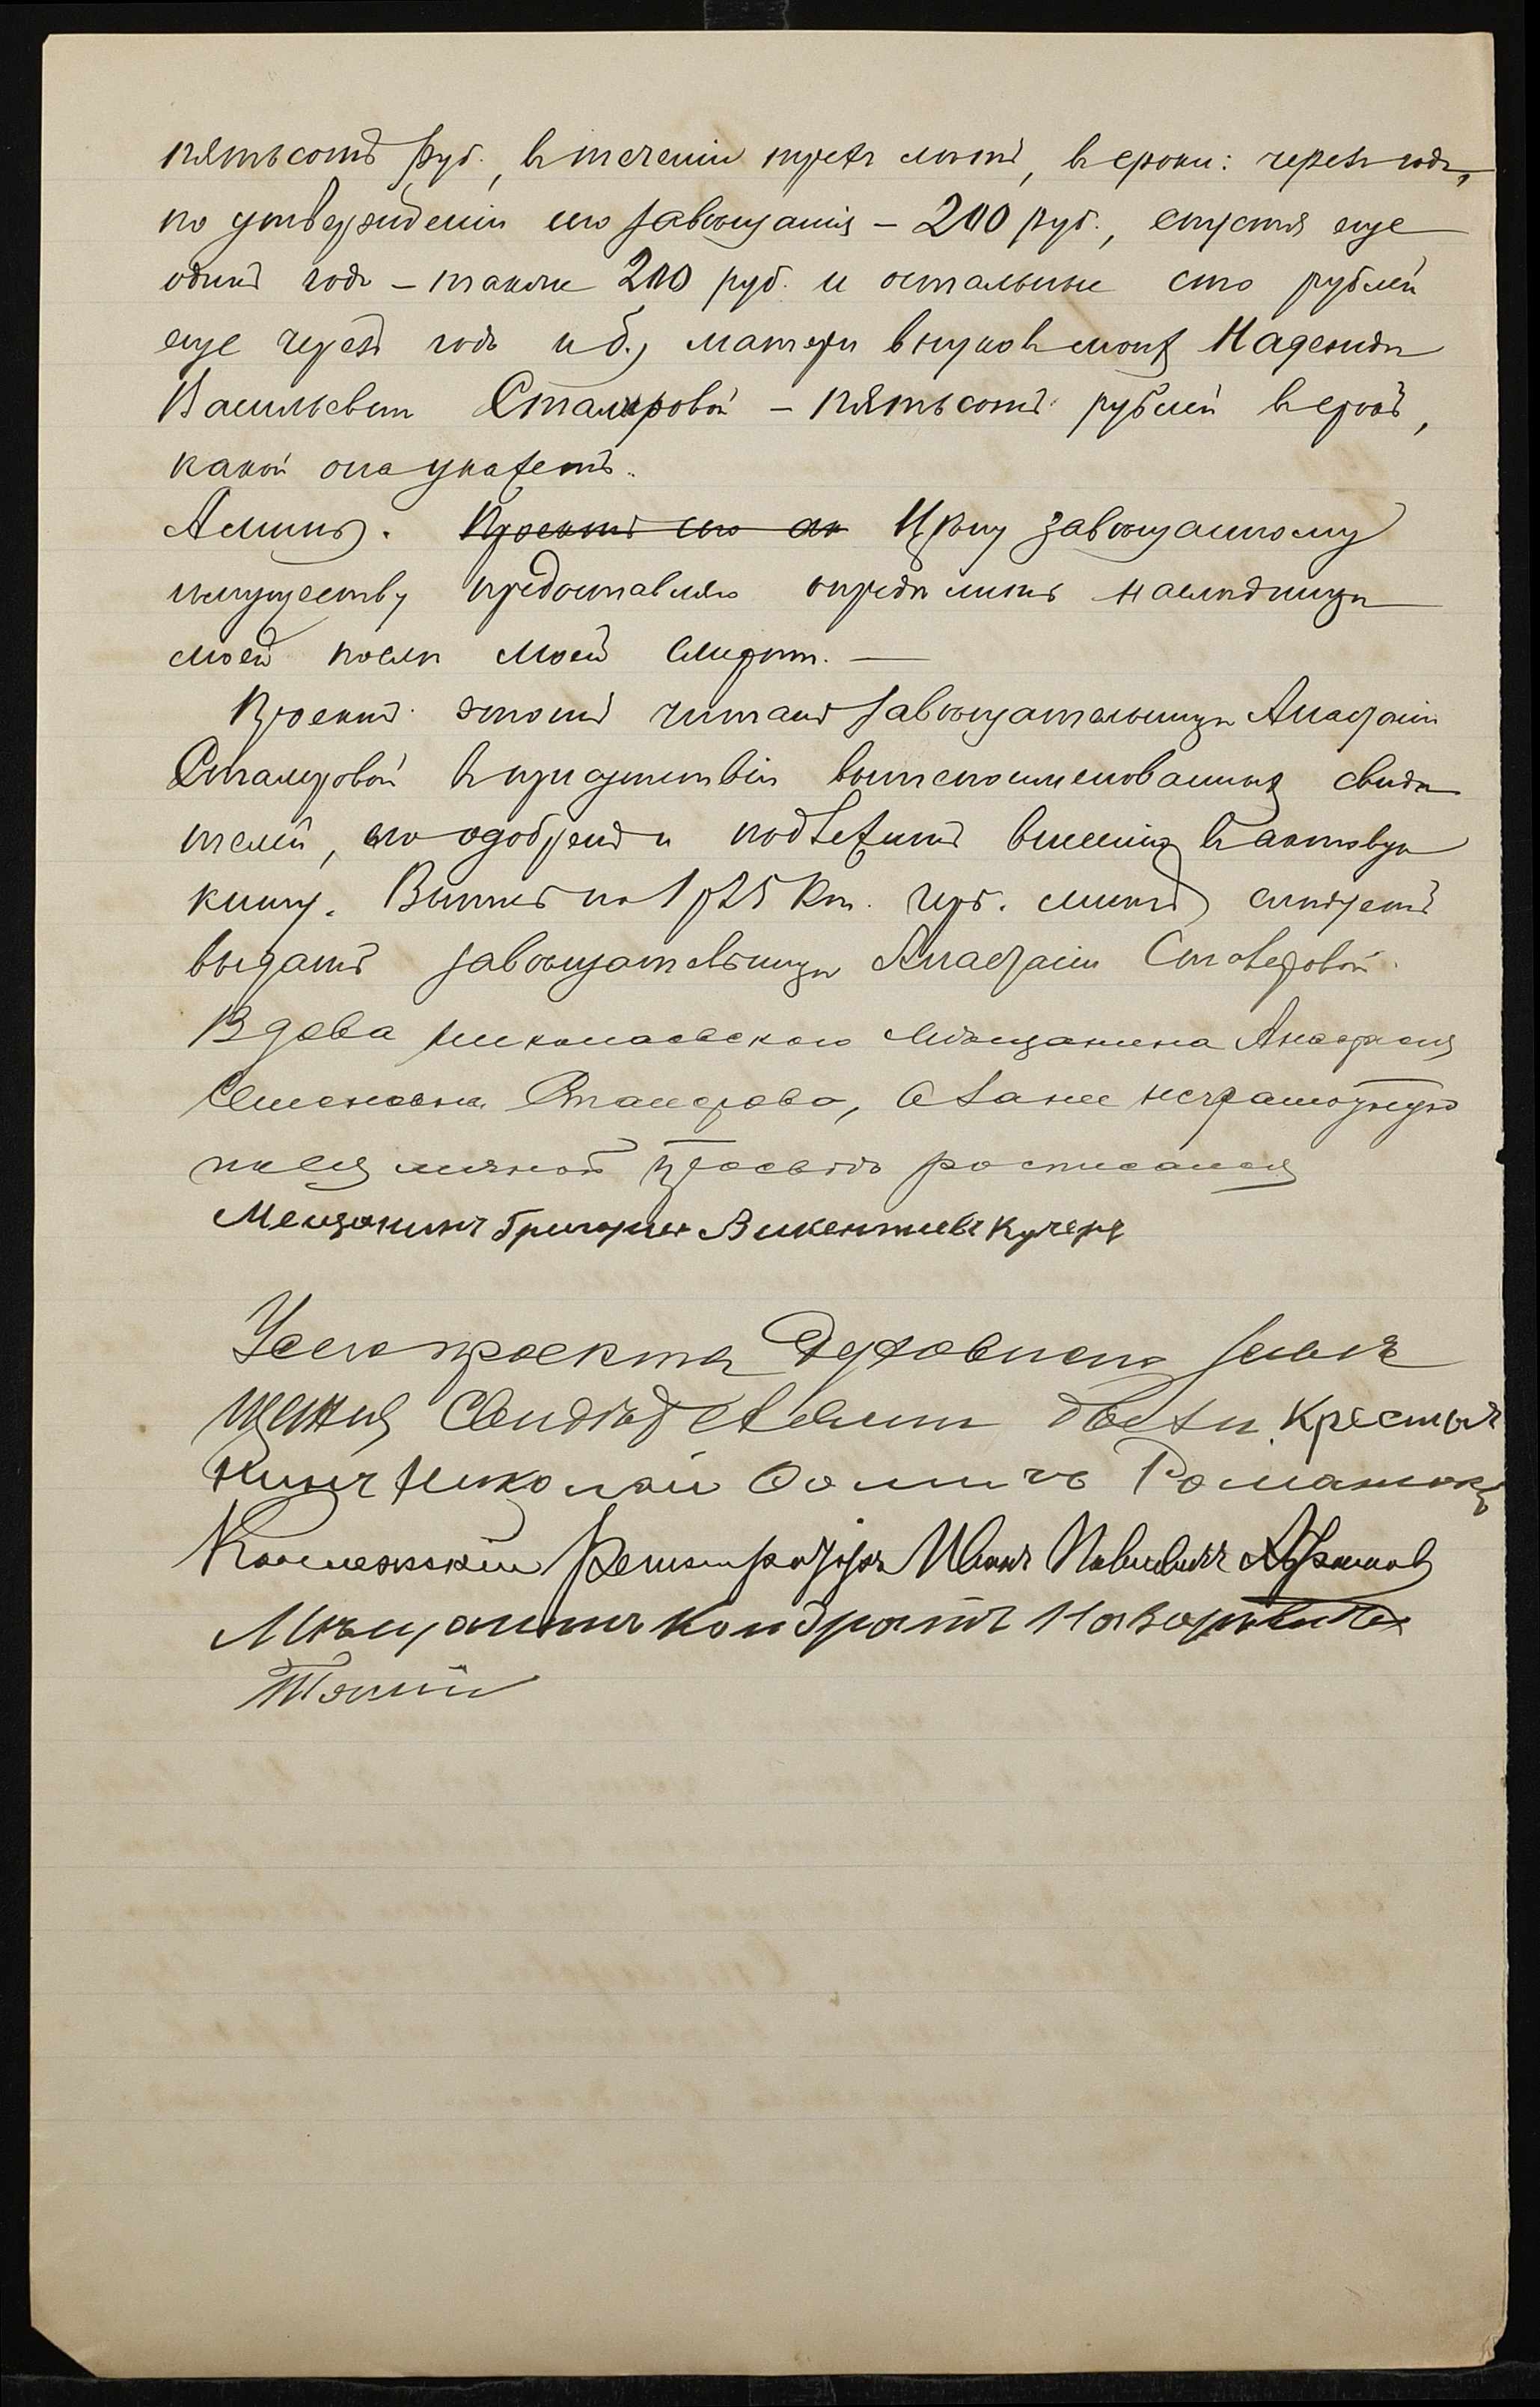 пятьсотъ руб., въ теченіи трехъ лѣтъ, въ сроки: черезъ годъ,
по утвержденіи сего завѣщанія – 200 руб., спустя еще
одинъ годъ – также 200 руб. и остальные сто рублей
еще черезъ годъ и б., матери внуковъ моихъ Надеждѣ
Васильевнѣ Сталировой – пятьсотъ рублей въ срокъ,
какой она укажетъ.
Аминь. Проектъ сего ак Цѣну завѣщанному
имуществу предоставляю опредѣлить наслѣдницѣ
моей послѣ моей смерти. —
Проектъ этотъ читанъ завѣщательницѣ Анастасіи
въ присутствіи вышепоименованныхъ свидѣ
телей, ею одобренъ и подлежитъ внесенію въ актовую
книгу. Выпись на 1 р 25 к. герб. листѣ слѣдуетъ
выдать завѣщательницѣ Анастасіи
Вдова николаевскаго мѣщанина Анастасія
Семеновна а за нее неграмотную
по ея личной прозьбѣ росписался
Мещанинъ Григорий Викентиевъ Кучеря
Усего проекта Духовнаго завѣ
щания Свидѣтелями были Крестья
нинъ Николай Романюкъ
Коллежский Регистраторъ Иванъ
Мѣщанинъ Кондратъ